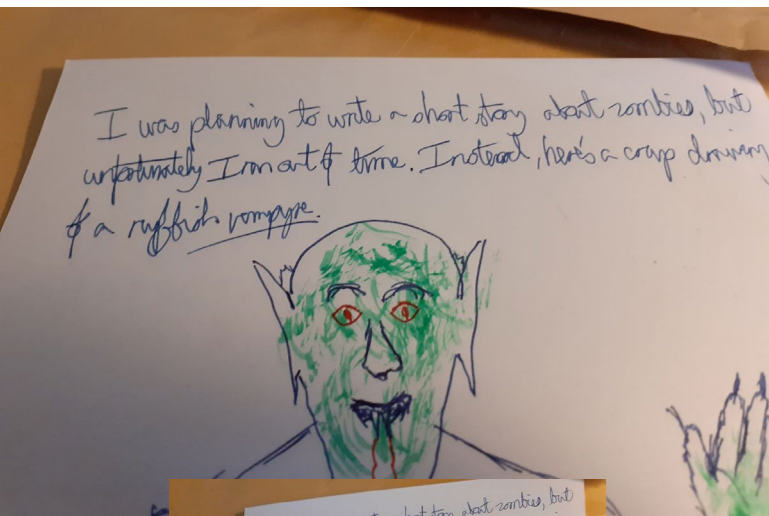 I was planning to write a short story about zombies, but
unfortunately I ran out of time. Instead, here's a crap drawing
of a ruffish vampyre.
about zombies, but